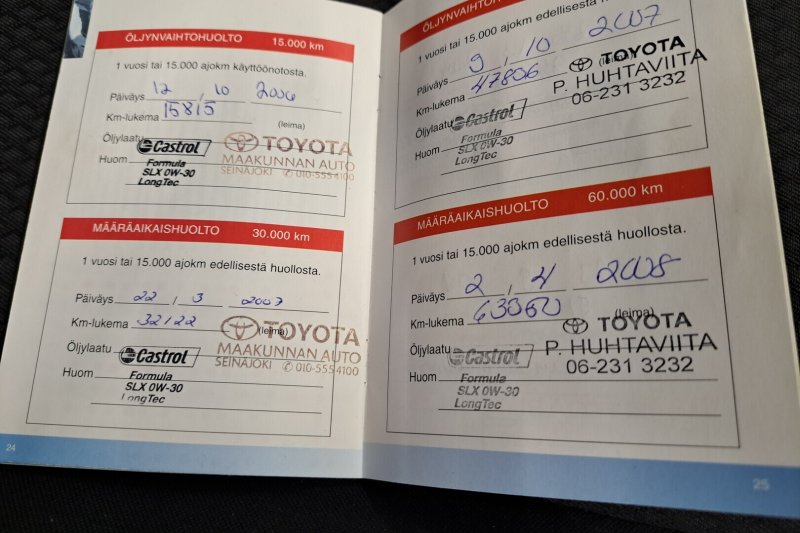 ÖLJYNVAIHTOHUOLTO 15.000 km
1 vuosi tai 15.000 ajokm käyttöönotosta.
Päiväys 12 / 10 2006
Km-lukema 15815
(leima)
Öljylaatu Castrol
Huom Formula
SLX 0W-30
LongTec
TOYOTA
MAAKUNNAN AUTO
SEINÄJOKI ✆ 010-555 4100
MÄÄRÄAIKAISHUOLTO 30.000 km
1 vuosi tai 15.000 ajokm edellisestä huollosta.
Päiväys 22 / 3 2007
Km-lukema 32122
(leima)
Öljylaatu Castrol
Huom Formula
SLX 0W-30
LongTec
TOYOTA
MAAKUNNAN AUTO
SEINÄJOKI ✆ 010-555 4100
24
ÖLJYNVAIHTOHUOLTO
1 vuosi tai 15.000 ajokm edellisestä
Päiväys 9 / 10 2007
Km-lukema 47806
(leima)
Öljylaatu Castrol
Huom Formula
SLX 0W-30
LongTec
TOYOTA
P. HUHTAVIITA
06-231 3232
MÄÄRÄAIKAISHUOLTO 60.000 km
1 vuosi tai 15.000 ajokm edellisestä huollosta.
Päiväys 2 / 4 2008
Km-lukema
(leima)
Öljylaatu Castrol
Huom Formula
SLX 0W-30
LongTec
TOYOTA
P. HUHTAVIITA
06-231 3232
25